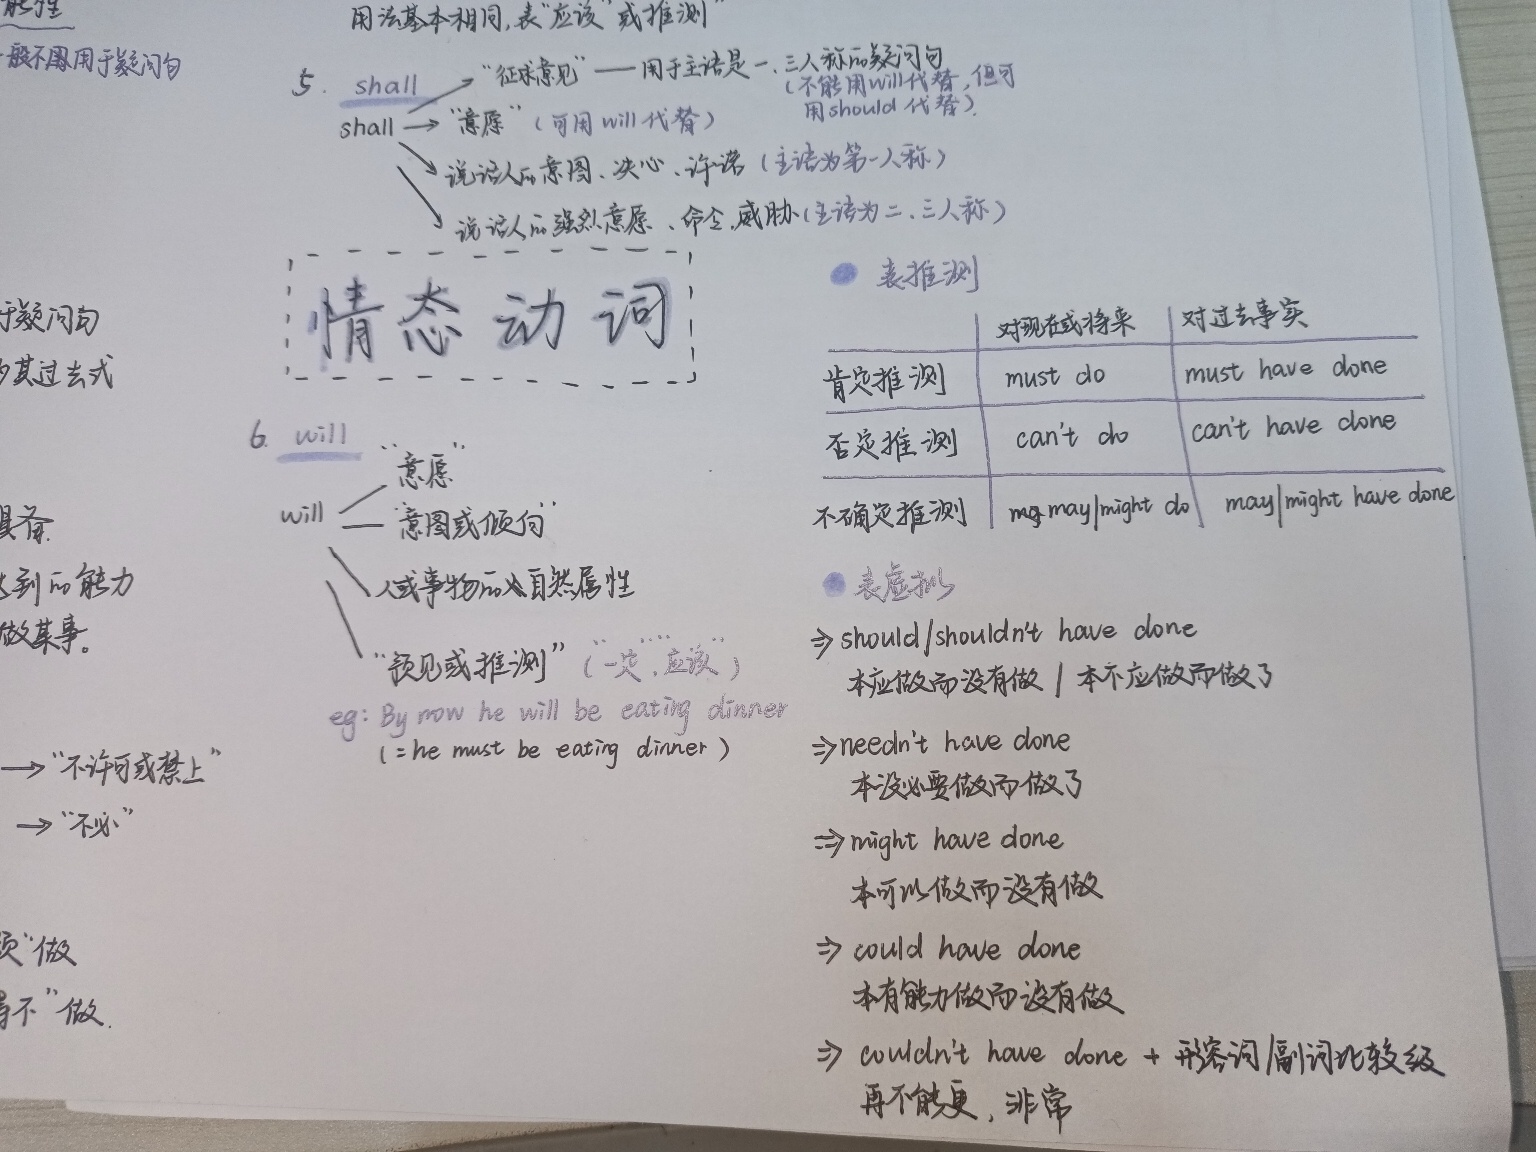 能性
一般不用于疑问句
于疑问句
其过去式
具备
达到的能力
做某事。
→“不许可或禁止”
→“不必”
须”做
得不”做.
用法基本相同,表“应该”或推测”
5. shall
shall
“征求意见”——用于主语是一、三人称的疑问句
(不能用will代替,但可
用should代替).
→“意愿”(可用will代替)
说话人的意图、决心、许诺(主语为第一人称)
说话人的强烈意愿、命令、威胁(主语为二、三人称)
情态动词
6. will
will
“意愿”
“意图或倾向”
人或事物的自然属性
“预见或推测”(“一定”,“应该”)
eg: By now he will be eating dinner
(=he must be eating dinner)
表推测
对现在或将来 对过去事实
肯定推测 must do must have done
否定推测 can't do can't have done
不确定推测 may|might do may|might have done
表虚拟
⇒ should/shouldn't have done
本应做而没有做 / 本不应做而做了
⇒ needn't have done
本没必要做而做了
⇒ might have done
本可以做而没有做
⇒ could have done
本有能力做而没有做
⇒ couldn't have done + 形容词/副词比较级
再不能更,非常